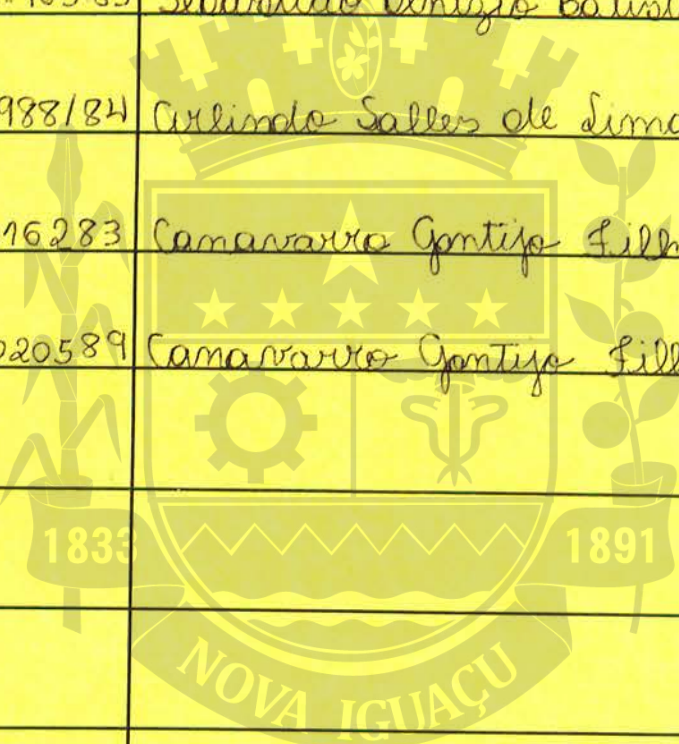 988/84 Arlindo Salles de Lima
16283 Canavarro Gontijo Filh
020589 Canavarro Gontijo Fill
1833 1891
NOVA IGUAÇU